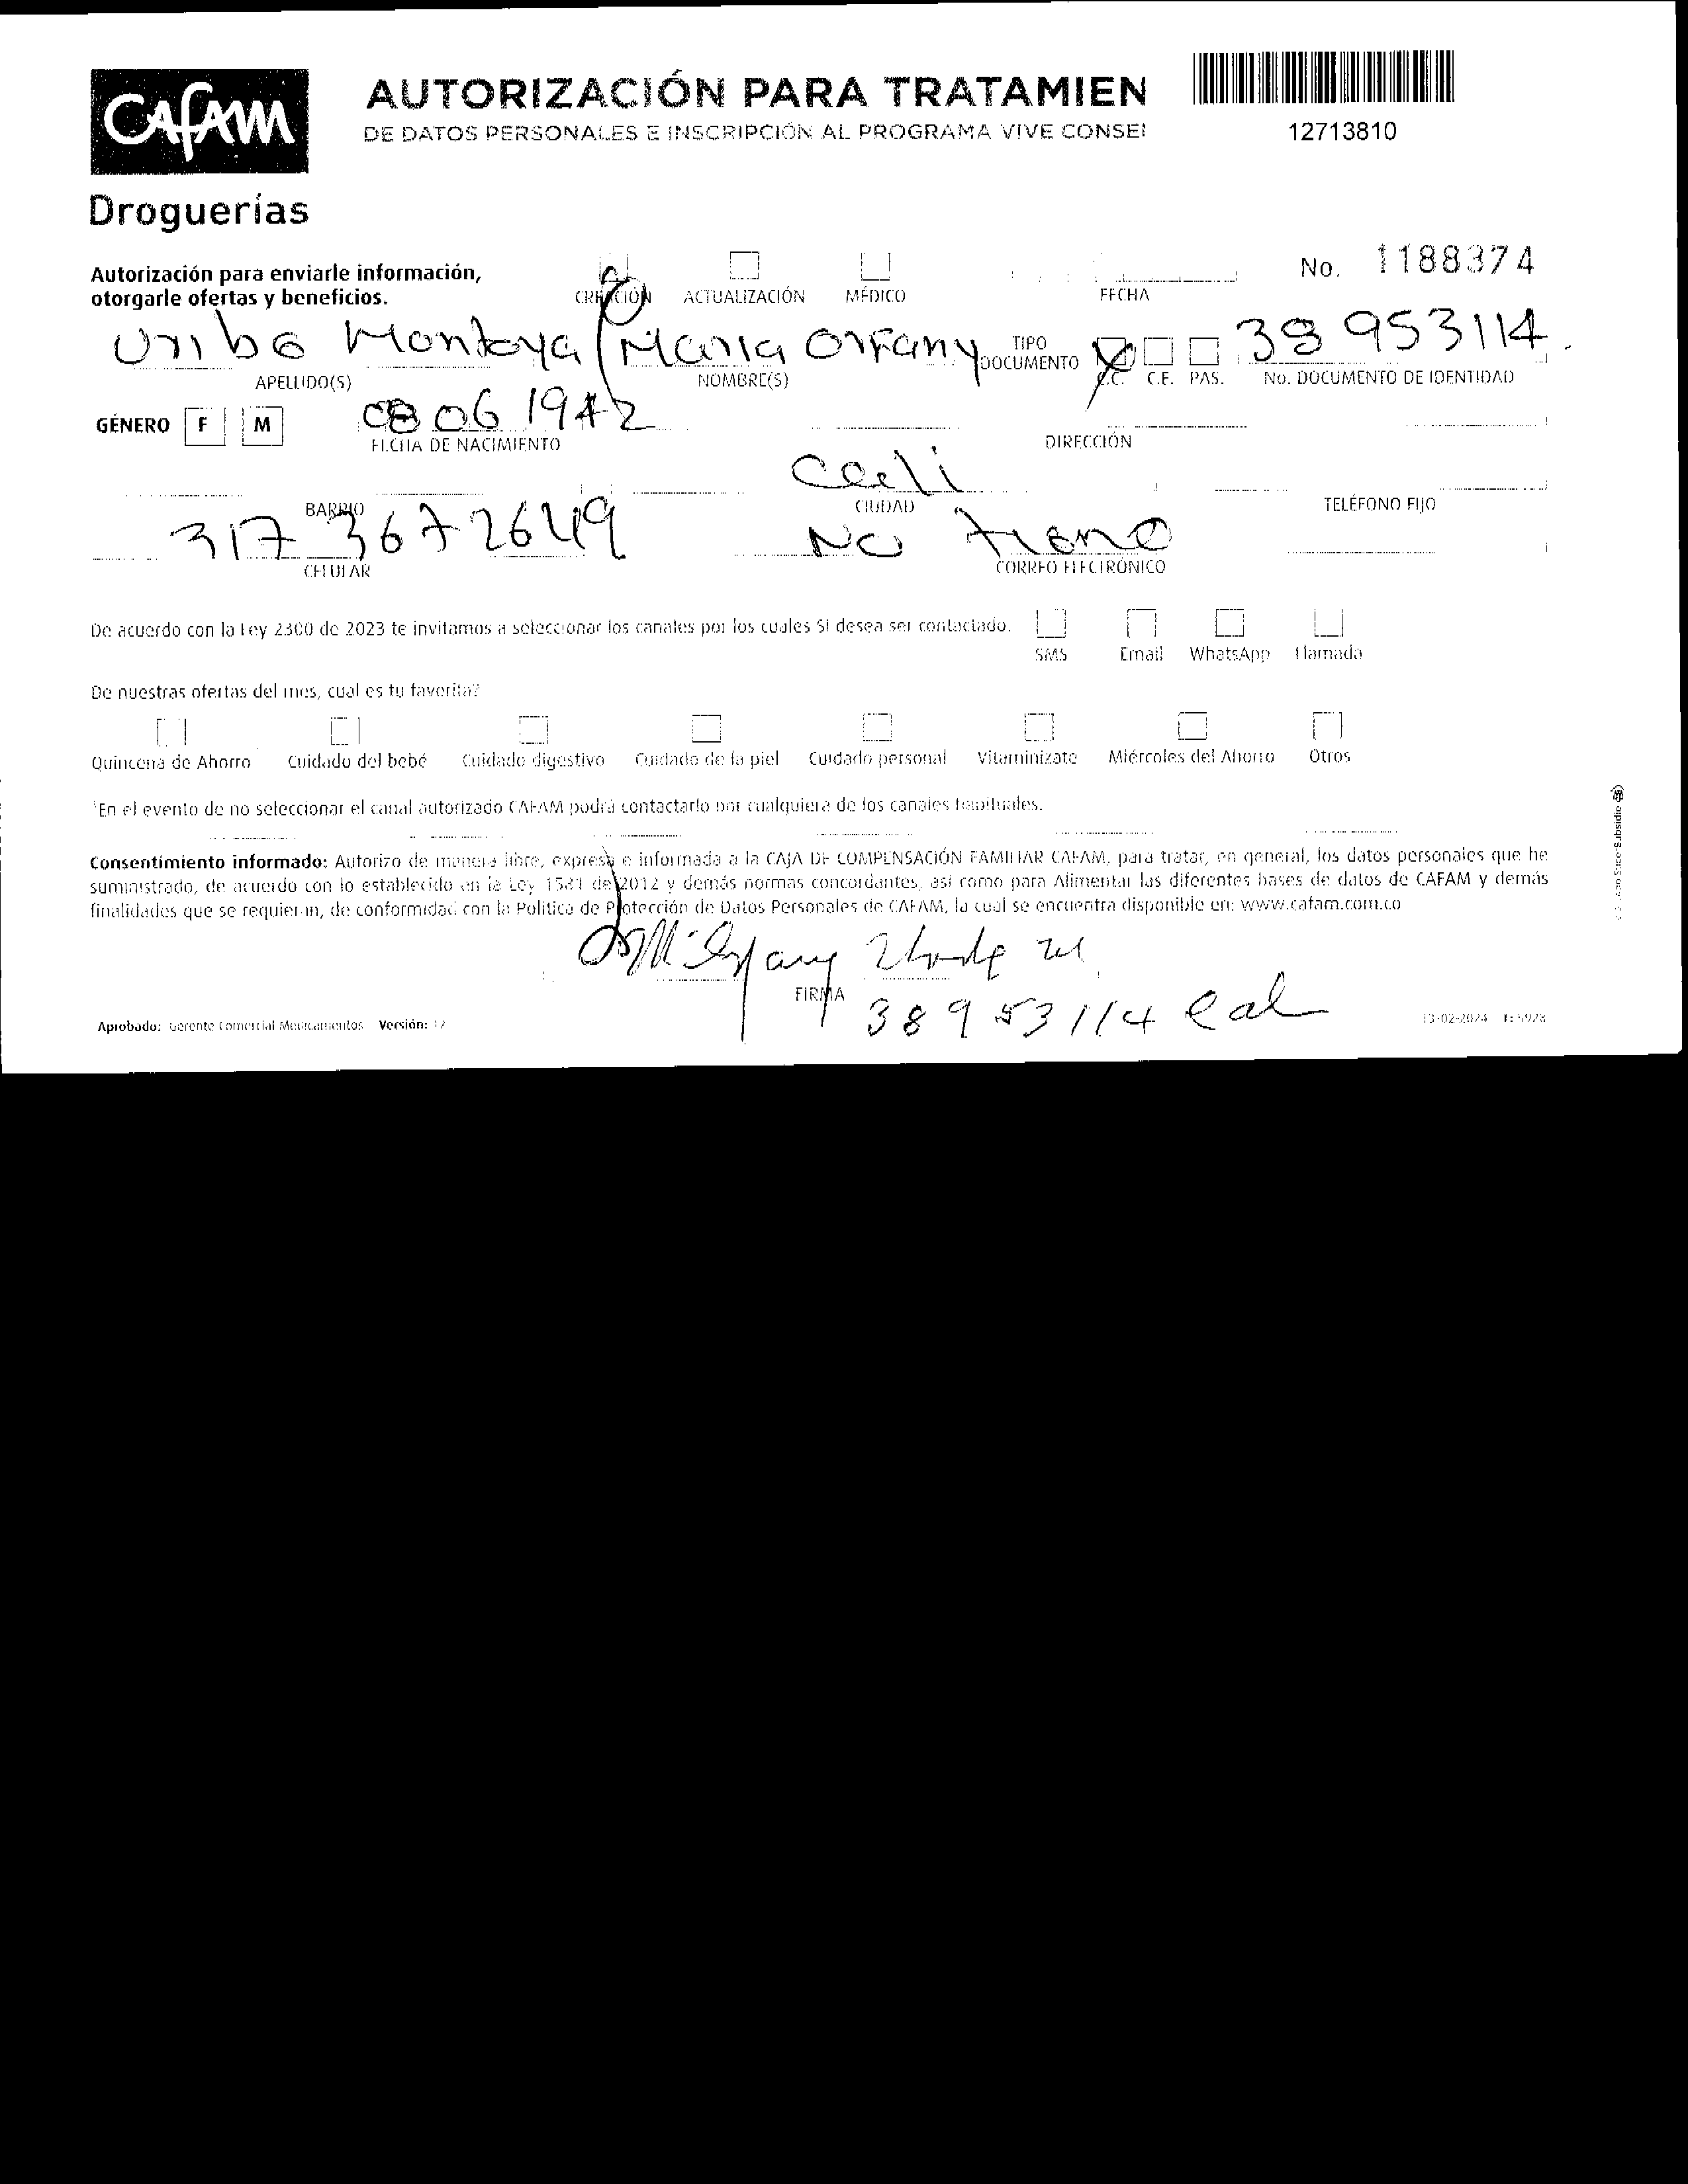 CAFAM
Droguerías
AUTORIZACIÓN PARA TRATAMIEN
DE DATOS PERSONALES E INSCRIPCIÓN AL PROGRAMA VIVE CONSE
12713810
Autorización para enviarle información,
otorgarle ofertas y beneficios.
CREACIÓN ACTUALIZACIÓN MÉDICO FECHA No. 1188374
Uribe Montoya Maria Orfany TIPO DOCUMENTO 38 953114
APELLIDO(S) NOMBRE(S) C.C. C.E. PAS. No. DOCUMENTO DE IDENTIDAD
GÉNERO F M 08 06 1942
FECHA DE NACIMIENTO DIRECCIÓN
Cali
BARRIO CIUDAD TELÉFONO FIJO
317 3672649 No tiene
CELULAR CORREO ELECTRÓNICO
De acuerdo con la Ley 2300 de 2023 te invitamos a seleccionar los canales por los cuales SI desea ser contactado.
SMS Email WhatsApp Llamada
De nuestras ofertas del mes, cual es tu favorita?
Quincena de Ahorro Cuidado del bebé Cuidado digestivo Cuidado de la piel Cuidado personal Vitaminízate Miércoles del Ahorro Otros
*En el evento de no seleccionar el canal autorizado CAFAM podrá contactarlo por cualquiera de los canales habituales.
Consentimiento informado: Autorizo de manera libre, expresa e informada a la CAJA DE COMPENSACIÓN FAMILIAR CAFAM, para tratar, en general, los datos personales que he
suministrado, de acuerdo con lo establecido en la Ley 1581 de 2012 y demás normas concordantes, así como para Alimentar las diferentes bases de datos de CAFAM y demás
finalidades que se requieran, de conformidad con la Política de Protección de Datos Personales de CAFAM, la cual se encuentra disponible en: www.cafam.com.co
FIRMA
38953114 Cal
Aprobado: Gerente Comercial Medicamentos Versión: 12
13-02-2024